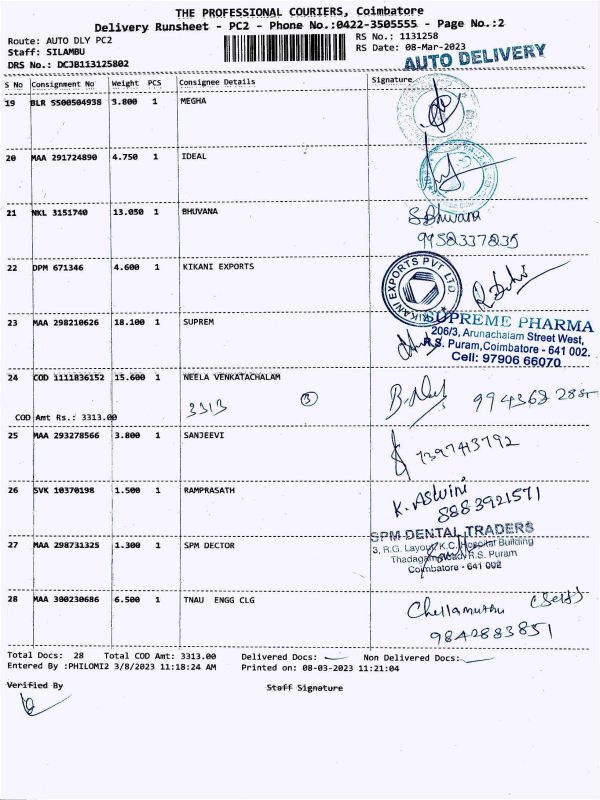 THE PROFESSIONAL COURIERS, Coimbatore
Delivery Runsheet - PC2 - Phone No.:0422-3505555 - Page No.:2
Route: AUTO DLY PC2
RS No.: 1131258
Staff: SILAMBU
RS Date: 08-Mar-2023
DRS No.: DCJB113125802
AUTO DELIVERY
S No Consignment No Weight PCS Consignee Details Signature
19 BLR 5500504938 3.800 1 MEGHA
20 MAA 291724890 4.750 1 IDEAL
21 NKL 3151740 13.050 1 BHUVANA
9958337835
22 DPM 671346 4.600 1 KIKANI EXPORTS
KIKANI EXPORTS PVT LTD
23 MAA 298210626 18.100 1 SUPREM
SUPREME PHARMA
206/3, Arunachalam Street West,
R.S. Puram, Coimbatore - 641 002.
Cell: 97906 66070
24 COD 1111836152 15.600 1 NEELA VENKATACHALAM
3313 3
COD Amt Rs.: 3313.00
25 MAA 293278566 3.800 1 SANJEEVI
7397413792
26 SVK 10370198 1.500 1 RAMPRASATH
K. Aswini
8883921571
27 MAA 298731325 1.300 1 SPM DECTOR
SPM DENTAL TRADERS
3, R.G. Layout, K.C. Hospital Building
Thadagam Road, R.S. Puram
Coimbatore - 641 002
28 MAA 300230686 6.500 1 TNAU ENGG CLG
Chellamuthu (Self)
9842883851
Total Docs: 28 Total COD Amt: 3313.00 Delivered Docs: Non Delivered Docs:
Entered By :PHILOMI2 3/8/2023 11:18:24 AM Printed on: 08-03-2023 11:21:04
Verified By Staff Signature